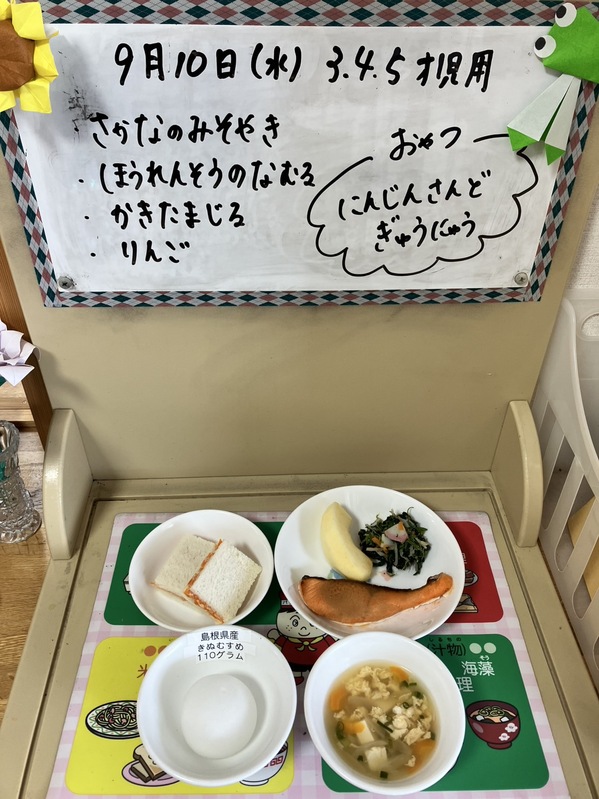 9月10日(水) 3.4.5才児用
さかなのみそやき
・ほうれんそうのなむる
・かきたまじる
・りんご
おやつ
にんじんさんど
ぎゅうにゅう
島根県産
きぬむすめ
110グラム
汁物)
海藻
理